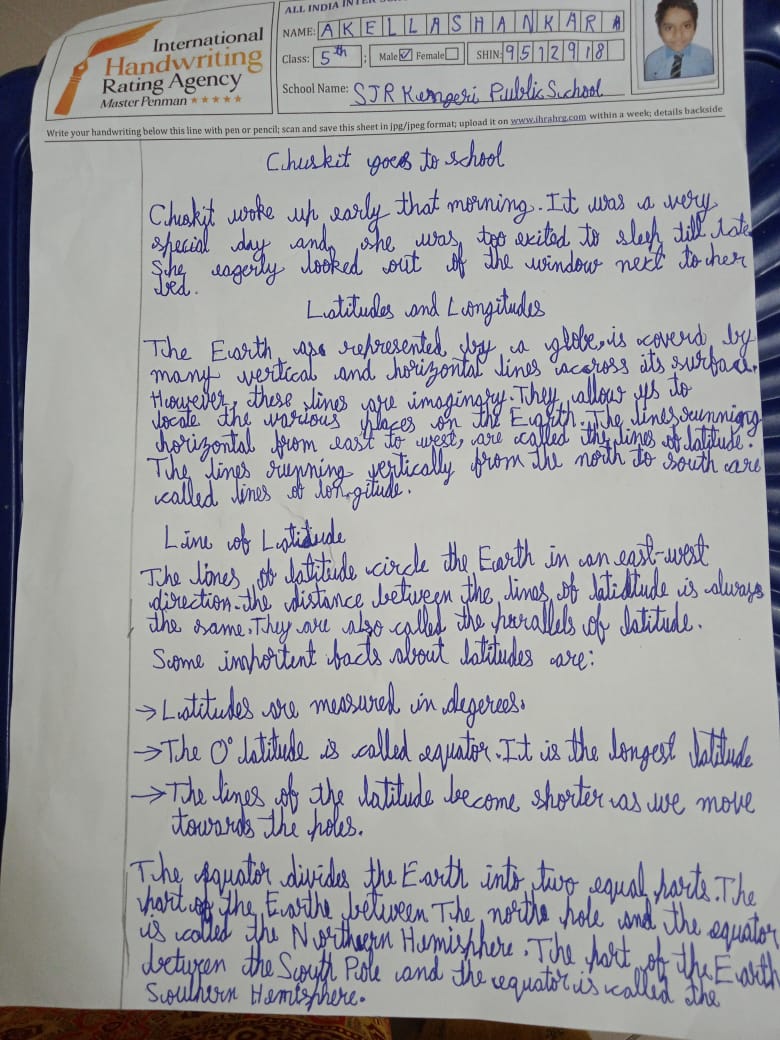 ALL INDIA INTER
International
Handwriting
Rating Agency
Master Penman ★★★★★
NAME: AKELLASHANKARA
Class: 5th ; Male ☑ Female☐ SHIN: 9512918
School Name: SJR Kengeri Public School
Write your handwriting below this line with pen or pencil; scan and save this sheet in jpg/jpeg format; upload it on www.ihrahrg.com within a week; details backside
Chuskit goes to school
Chuskit woke up early that morning. It was a very
special day and she was too exited to sleep till late
She eagerly looked out of the window next to her
bed.
Latitudes and Longitudes
The Earth, as represented by a globe, is coverd by
many vertical and horizontal lines accross its surface.
However, these lines are imaginary. They allow us to
locate the various places on the Earth. The lines running
horizontal from east to west, are called the lines of latitude.
The lines running vertically from the north to south are
called lines of longitude.
Line of Latitude
The lines of latitude circle the Earth in an east-west
direction. the distance between the lines of latidtude is always
the same. They are also called the parallels of latitude.
Some importent facts about latitudes are:
→ Latitudes are measured in degerees.
→ The 0° latitude is called equator. It is the longest latitude
→ The lines of the latitude become shorter as we move
towards the poles.
The equator divides the Earth into two equal parts. The
part of the Earthe between The northe pole and the equator
is called the Northeern Hemisphere. The part of the Earth
between the South Pole and the equator is called the
Southern Hemisphere.